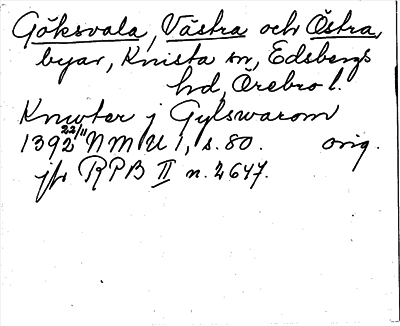 Göksvala, Västra och Östra,
byar, Knista sn, Edsbergs
hd, Örebro l.
Knwter j Gylswarom
1392 22/11 NMU 1, s. 80. orig.
jfr RPB II n. 2647.